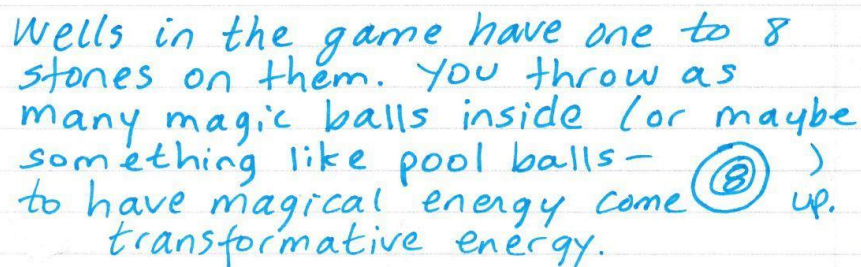 Wells in the game have one to 8
stones on them. You throw as
many magic balls inside (or maybe
something like pool balls- 8 )
to have magical energy come up.
transformative energy.